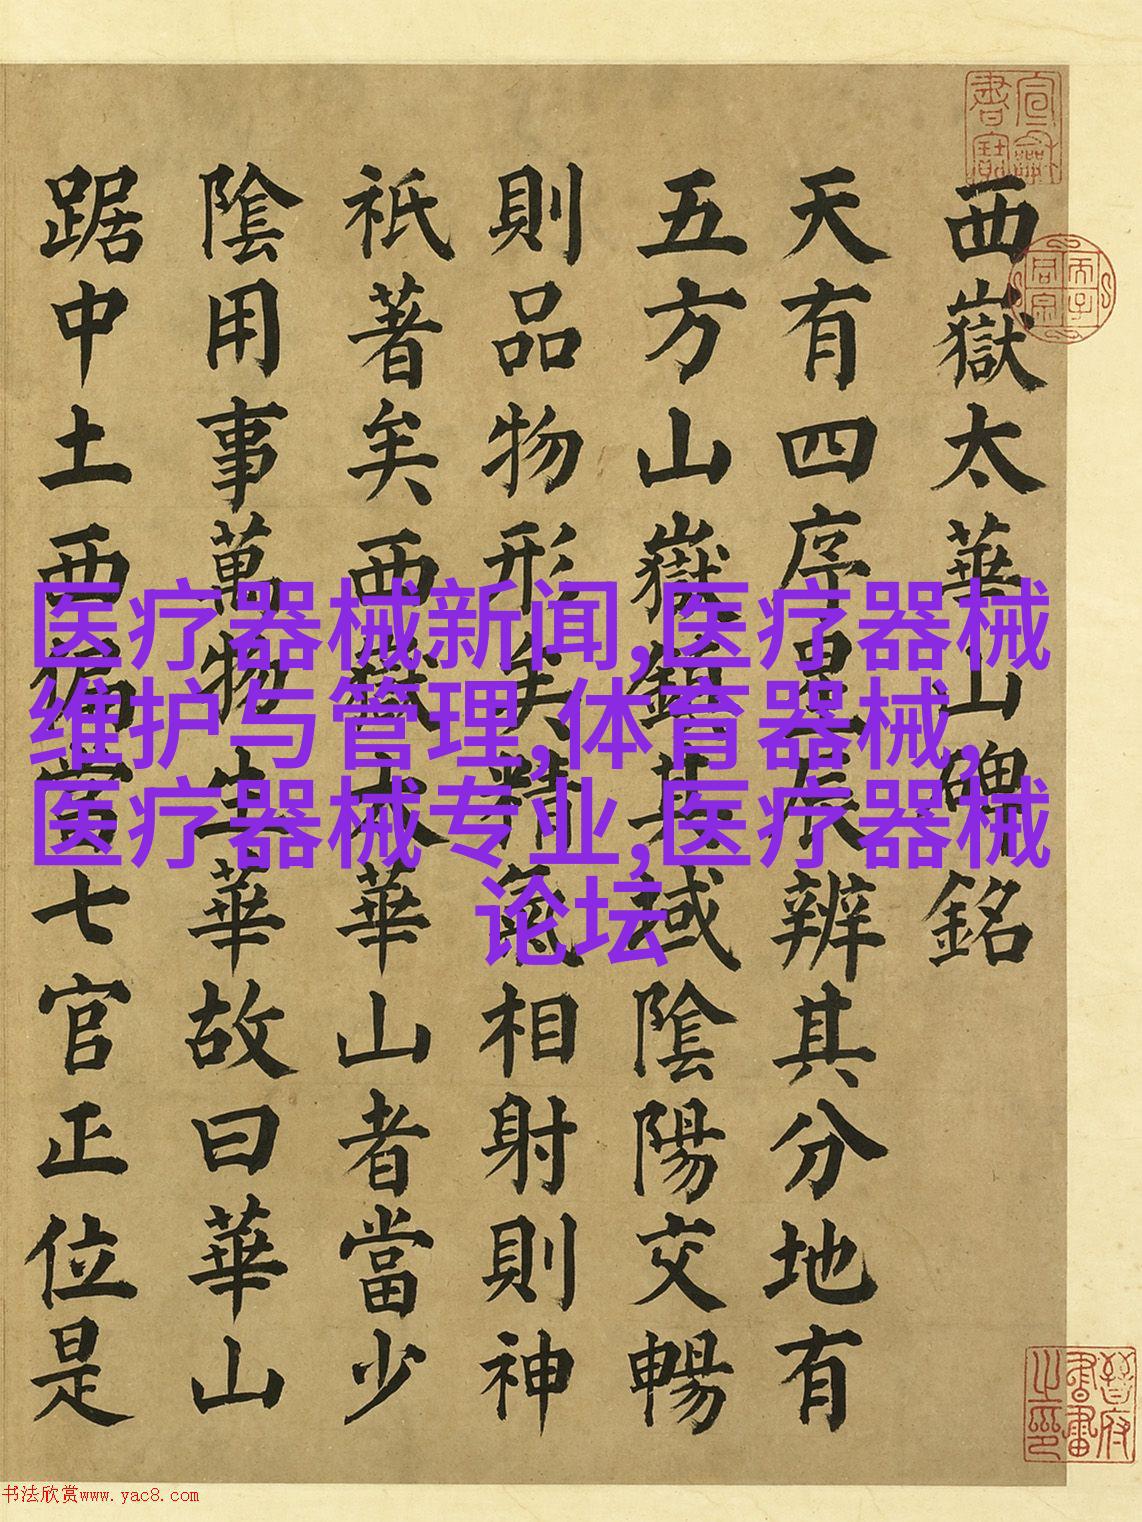 西嶽太華山碑銘
天有四序星辰辨其分地有
五方山嶽鎮其域陰陽交暢
則品物形矣精氣相射則神
祇著矣西嶽太華山者當少
陰用事萬物生華故曰華山
踞中土西七官正位是
医疗器械新闻,医疗器械
维护与管理,体育器械,
医疗器械专业,医疗器械
论坛
晉府書畫之印
书法欣赏www.yac8.com